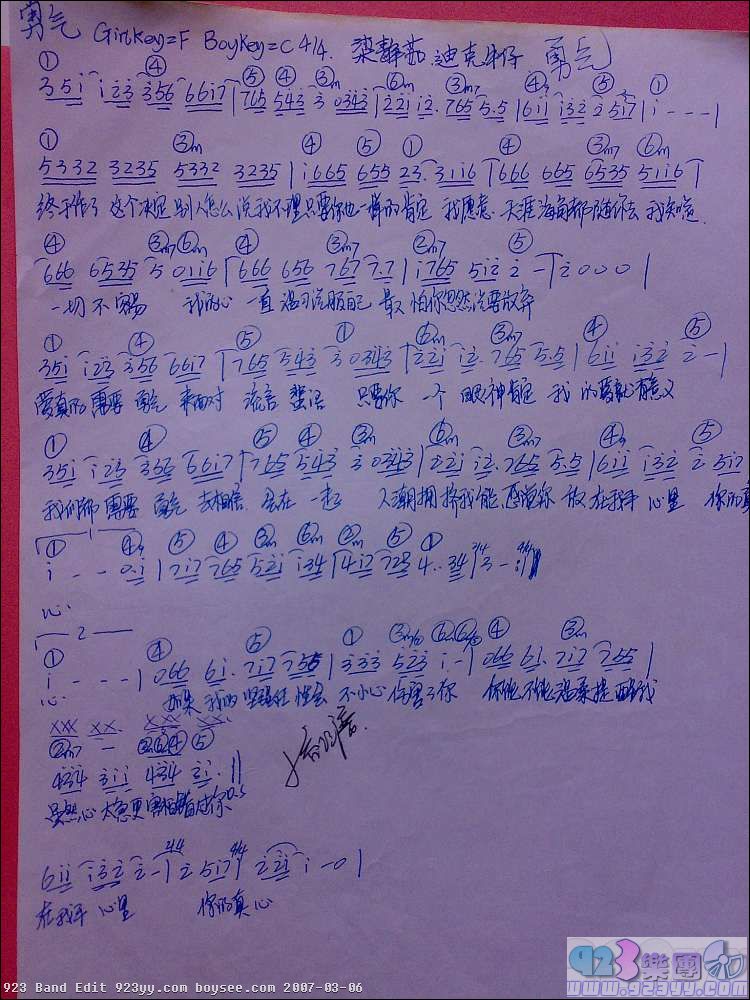 勇气 Girlkey=F Boykey=C 4/4. 梁静茹 迪克牛仔 勇气
① ④ ⑤ ④ ③m ⑥m ③m7 ④ ⑤ ①
3 5 i i 2 3 3 5 6 6 6 i 7 | 7 6 5 5 4 3 3 0 3 4 3 | 2 2 i i 2. 7 6 5 5.5 | 6 i i i 3 2 2 5 i 7 | i - - - |
① ③m ④ ⑤ ① ④ ③m7 ⑥m
5 3 3 2 3 2 3 5 5 3 3 2 3 2 3 5 | i 6 6 5 6 5 5 2 3. 3 i i 6 | 6 6 6 6 6 5 6 5 3 5 5 i i 6 |
终于作了 这个决定 别人怎么说我不理 只要你也一样的肯定 我愿意 天涯海角都随你去 我知道
④ ③m7 ⑥m ④ ③m7 ②m7 ⑤
6 6 6 6 5 3 5 5 0 i i 6 | 6 6 6 6 5 6 7 6 7 7.7 | i 7 6 5 5 i 2 2 - | 2 0 0 0 |
一切不容易 我的心 一直温习说服自己 最怕你忽然说要放弃
① ④ ⑤ ① ⑥m ③m7 ④ ⑤
3 5 i i 2 3 3 5 6 6 6 i 7 | 7 6 5 5 4 3 3 0 3 4 3 | 2 2 i i 2. 7 6 5 5.5 | 6 i i i 3 2 2 - |
爱真的 需要 勇气 来面对 流言 蜚语 只要你 一个 眼神肯定 我的爱就有意义
① ④ ⑤ ④ ③m ⑥m ③m7 ④ ⑤
3 5 i i 2 3 3 5 6 6 6 i 7 | 7 6 5 5 4 3 3 0 3 4 3 | 2 2 i i 2. 7 6 5 5.5 | 6 i i i 3 2 2 5 i 7
我们都 需要 勇气 去相信 会在一起 人潮拥挤我能感觉你 放在我手心里 你的真
1
① ④ ⑤ ④ ③m ⑥m ②m ⑤ ①
i - - 0.i | 7 i 7 7 6 5 5 2 i i 3 4 | 4 i 7 7 2 3 4.. 3 4 | 3 - :||
心.
2
① ④ ⑤ ① ③m ⑥m ④ ③m
i - - - | 0 6 6 6 i. 7 i 7 7 5 5 | 3 3 3 5 2 3 i - | 0 6 6 6 i. 7 i 7 7 6 5 |
心 如果 我的 坚强任性会 不小心 伤害了你 你能不能温柔提醒我
XXX XX. XXX XX
②m7 - ④ ⑤
4 3 4 3 i i 4 3 4 2 i. ||
虽然心太急更害怕错过你
6 i i i 3 2 2 - | 2 5 i 7 | 2 2 i i - 0 |
在我手 心里 你的真心
923 Band Edit 923yy.com boysee.com 2007-03-06
923樂團
www.923yy.com